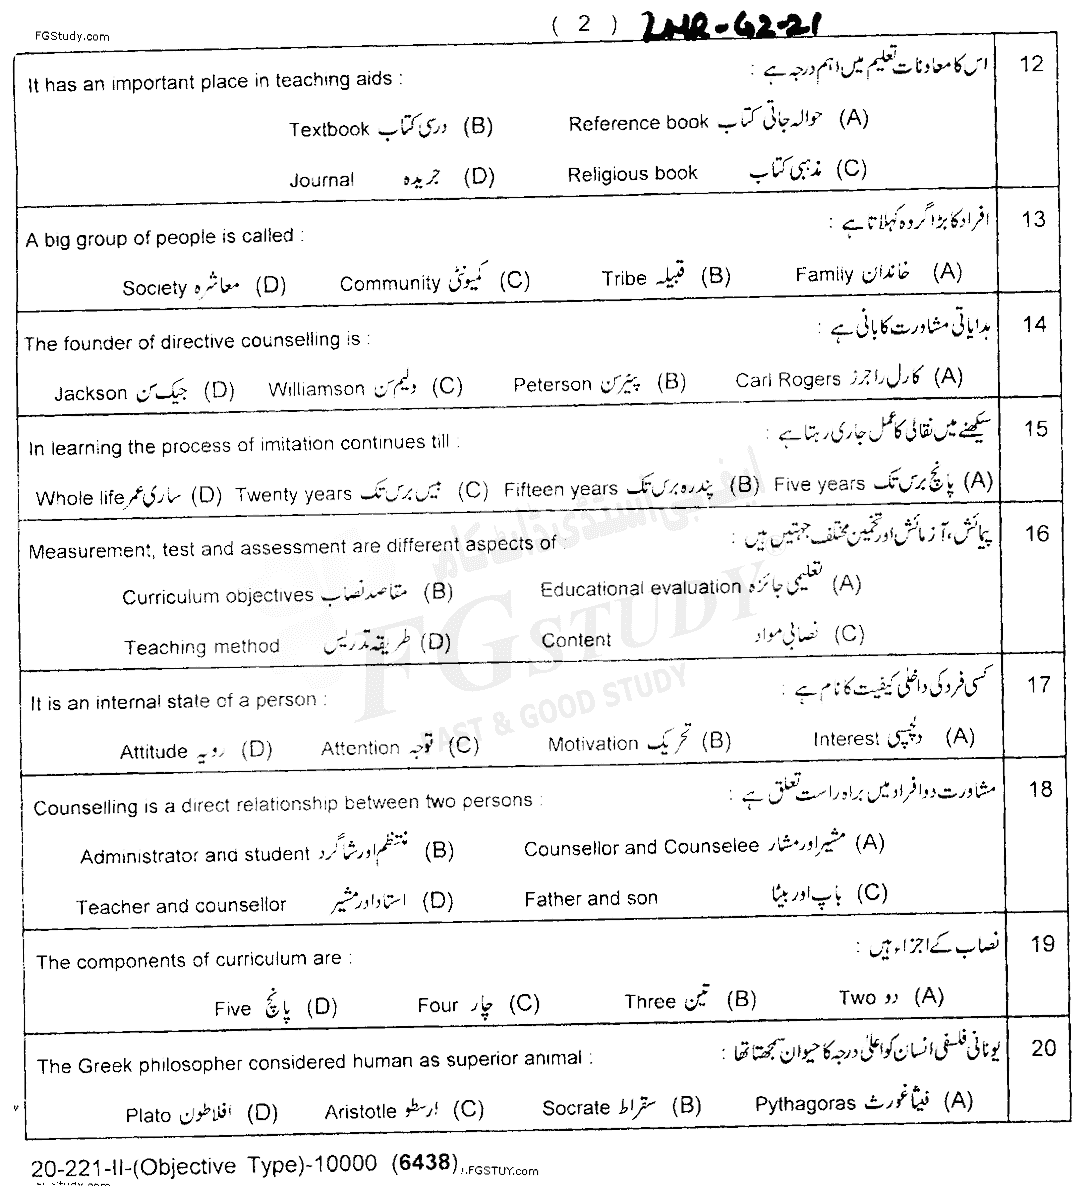 FGStudy.com
( 2 ) LHR-G2-21
It has an important place in teaching aids : اس کا معاونات تعلیم میں اہم درجہ ہے : 12
Textbook درسی کتاب (B) Reference book حوالہ جاتی کتاب (A)
Journal جریدہ (D) Religious book مذہبی کتاب (C)
A big group of people is called : افراد کا بڑا گروہ کہلاتا ہے : 13
Society معاشرہ (D) Community کمیونٹی (C) Tribe قبیلہ (B) Family خاندان (A)
The founder of directive counselling is : ہدایاتی مشاورت کا بانی ہے : 14
Jackson جیک سن (D) Williamson ولیم سن (C) Peterson پیٹرسن (B) Carl Rogers کارل راجرز (A)
In learning the process of imitation continues till : سیکھنے میں نقالی کا عمل جاری رہتا ہے : 15
Whole life ساری عمر (D) Twenty years بیس برس تک (C) Fifteen years پندرہ برس تک (B) Five years پانچ برس تک (A)
Measurement, test and assessment are different aspects of : پیمائش، آزمائش اور تخمین مختلف جہتیں ہیں : 16
Curriculum objectives مقاصد نصاب (B) Educational evaluation تعلیمی جائزہ (A)
Teaching method طریقہ تدریس (D) Content نصابی مواد (C)
It is an internal state of a person : کسی فرد کی داخلی کیفیت کا نام ہے : 17
Attitude رویہ (D) Attention توجہ (C) Motivation تحریک (B) Interest دلچسپی (A)
Counselling is a direct relationship between two persons : مشاورت دو افراد میں براہ راست تعلق ہے : 18
Administrator and student منتظم اور شاگرد (B) Counsellor and Counselee مشیر اور مشار (A)
Teacher and counsellor استاد اور مشیر (D) Father and son باپ اور بیٹا (C)
The components of curriculum are : نصاب کے اجزاء ہیں : 19
Five پانچ (D) Four چار (C) Three تین (B) Two دو (A)
The Greek philosopher considered human as superior animal : یونانی فلسفی انسان کو اعلیٰ درجہ کا حیوان سمجھتا تھا : 20
Plato افلاطون (D) Aristotle ارسطو (C) Socrate سقراط (B) Pythagoras فیثاغورث (A)
20-221-II-(Objective Type)-10000 (6438)
.FGSTUY.com
ایف جی اسٹڈی ڈاٹ کام
FG STUDY
FAST & GOOD STUDY